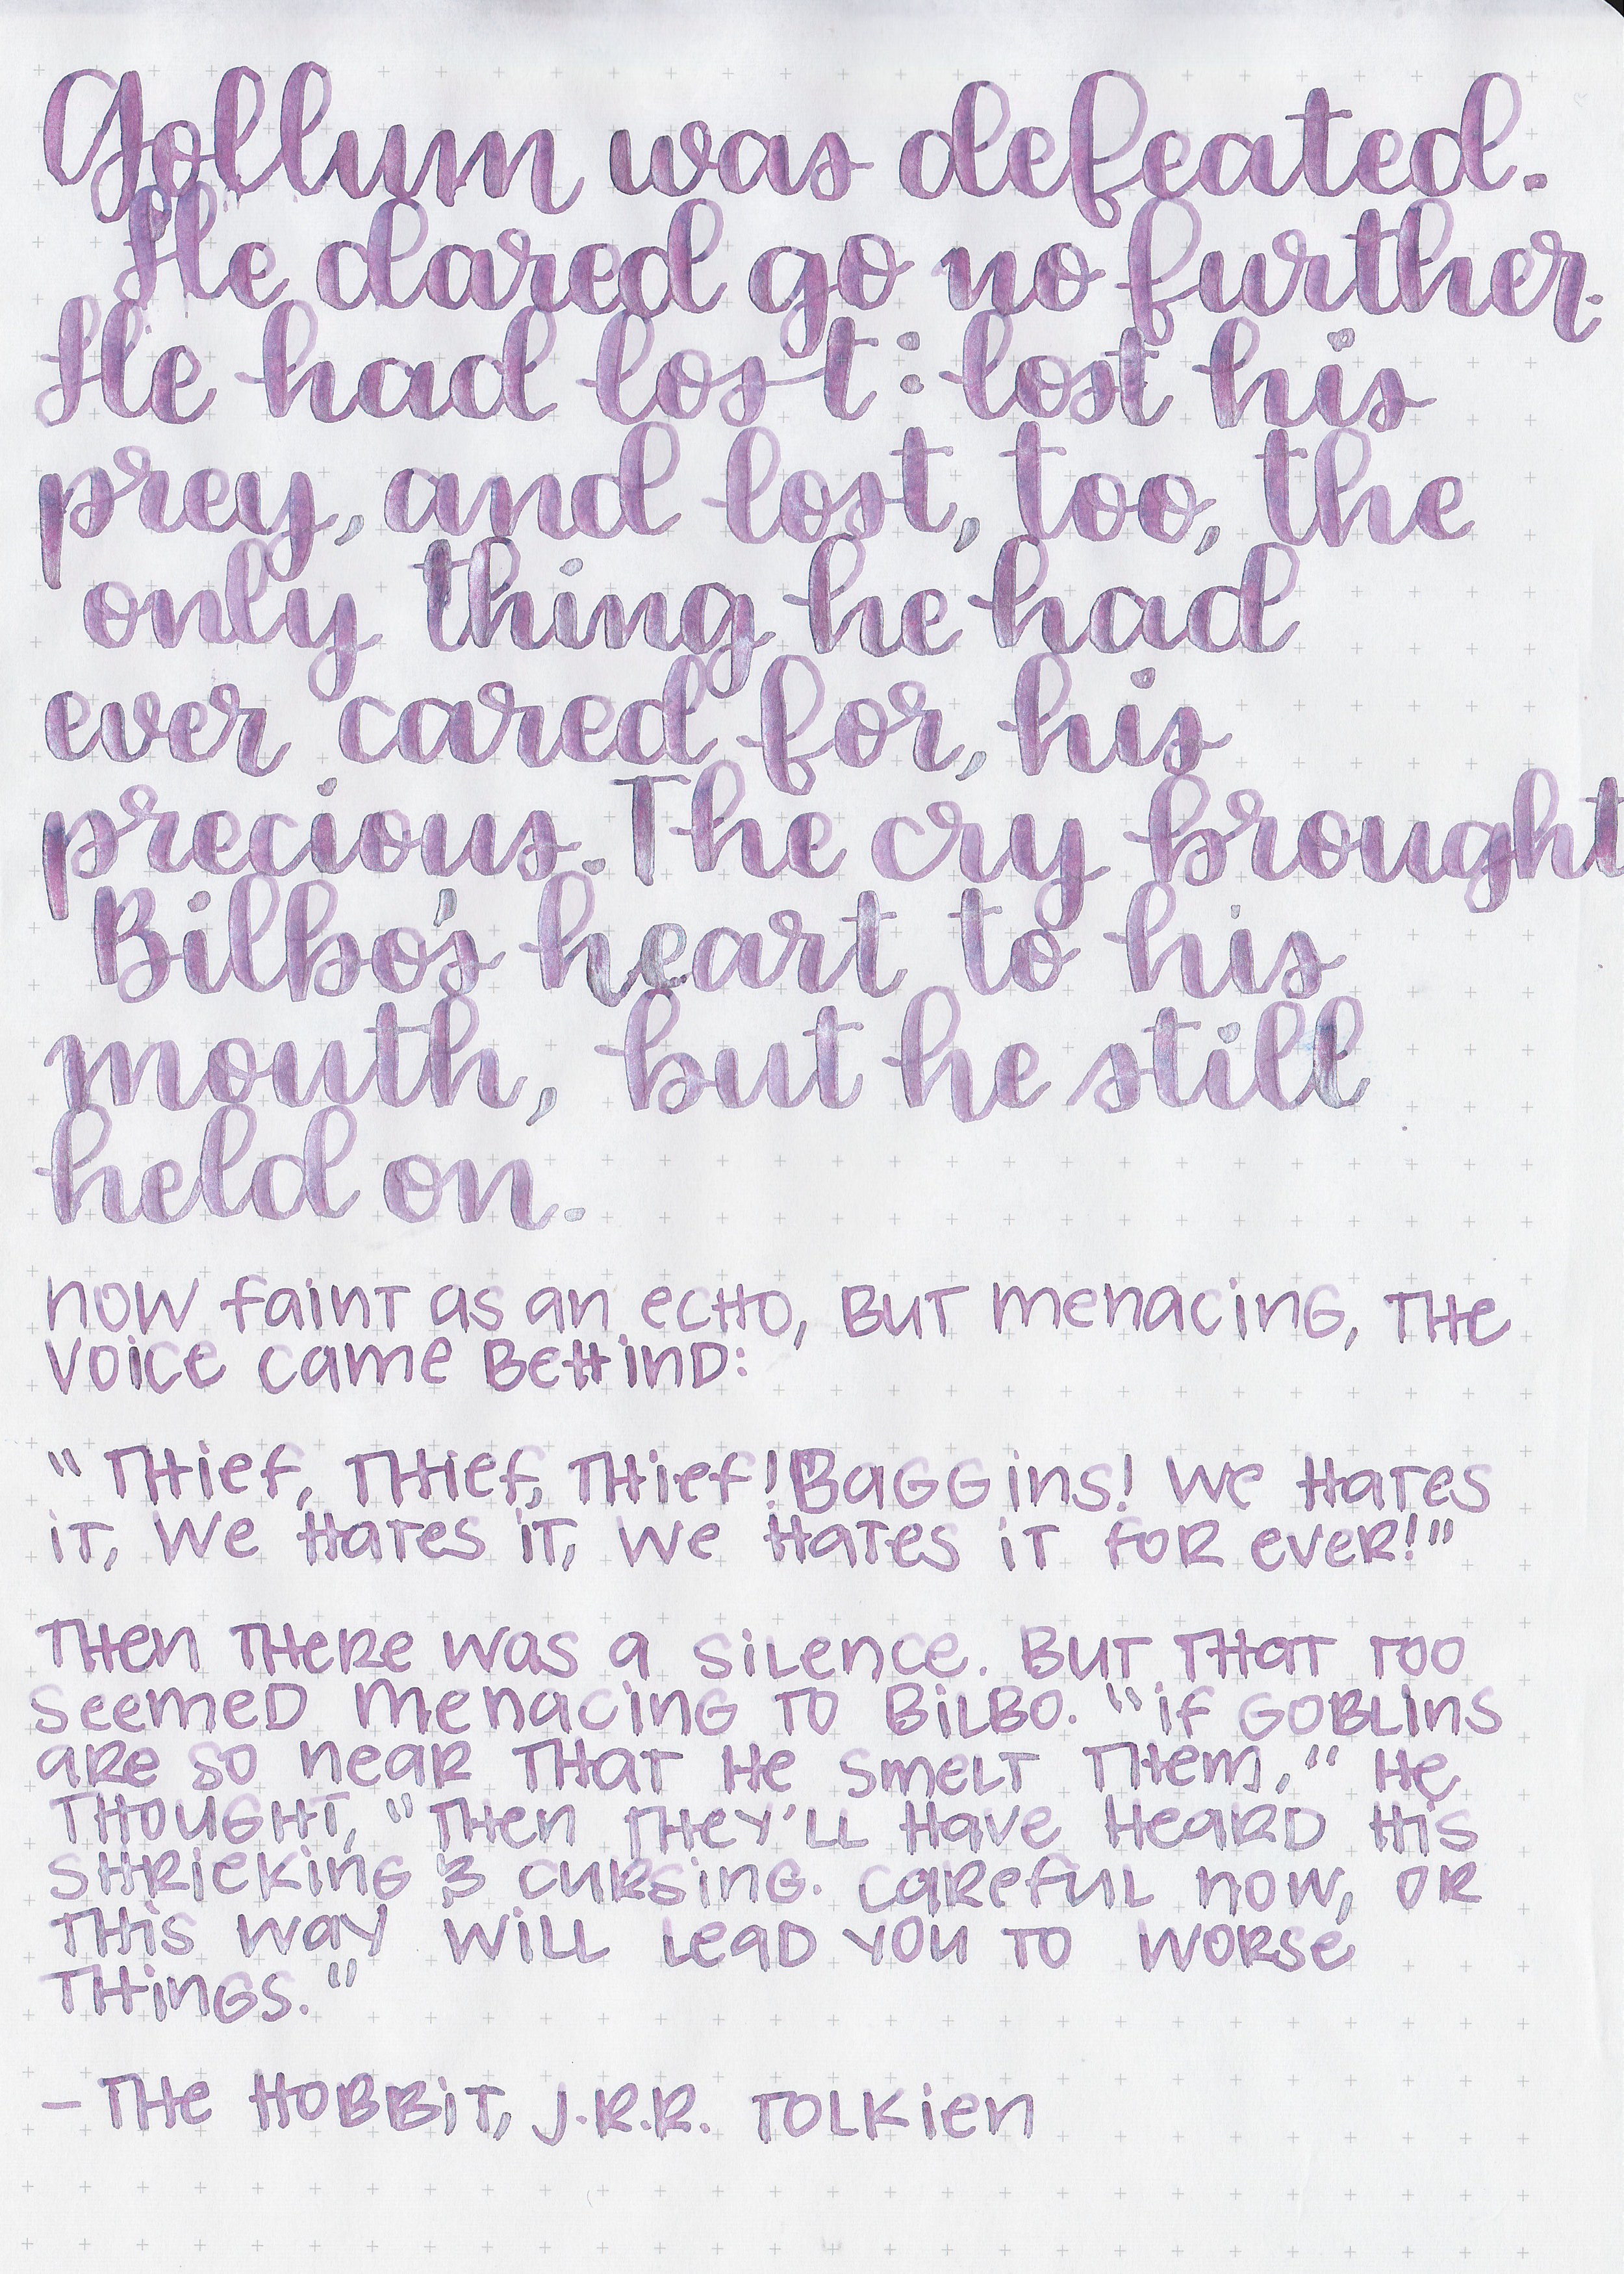 Gollum was defeated.
He dared go no further.
He had lost: lost his
prey, and lost, too, the
only thing he had
ever cared for, his
precious. The cry brought
Bilbo's heart to his
mouth, but he still
held on.
Now faint as an echo, but menacing, the
voice came behind:
"Thief, thief, thief! Baggins! We hates
it, we hates it, we hates it for ever!"
Then there was a silence. But that too
seemed menacing to Bilbo. "If goblins
are so near that he smelt them," he
thought, "then they'll have heard his
shrieking & cursing. Careful now, or
this way will lead you to worse
things."
- The Hobbit, J.R.R. Tolkien